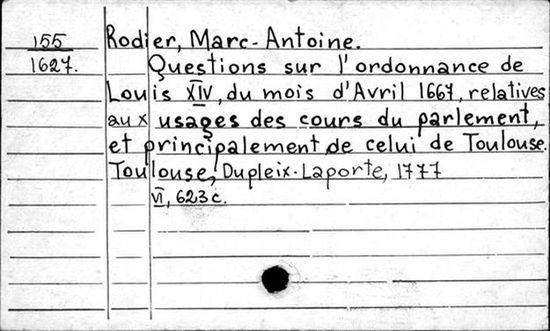 155 Rodier, Marc-Antoine.
1627. Questions sur l'ordonnance de
Louis XIV, du mois d'Avril 1667, relatives
aux usages des cours du parlement,
et principalement de celui de Toulouse.
Toulouse, Dupleix-Laporte, 1777
VI, 623 c.